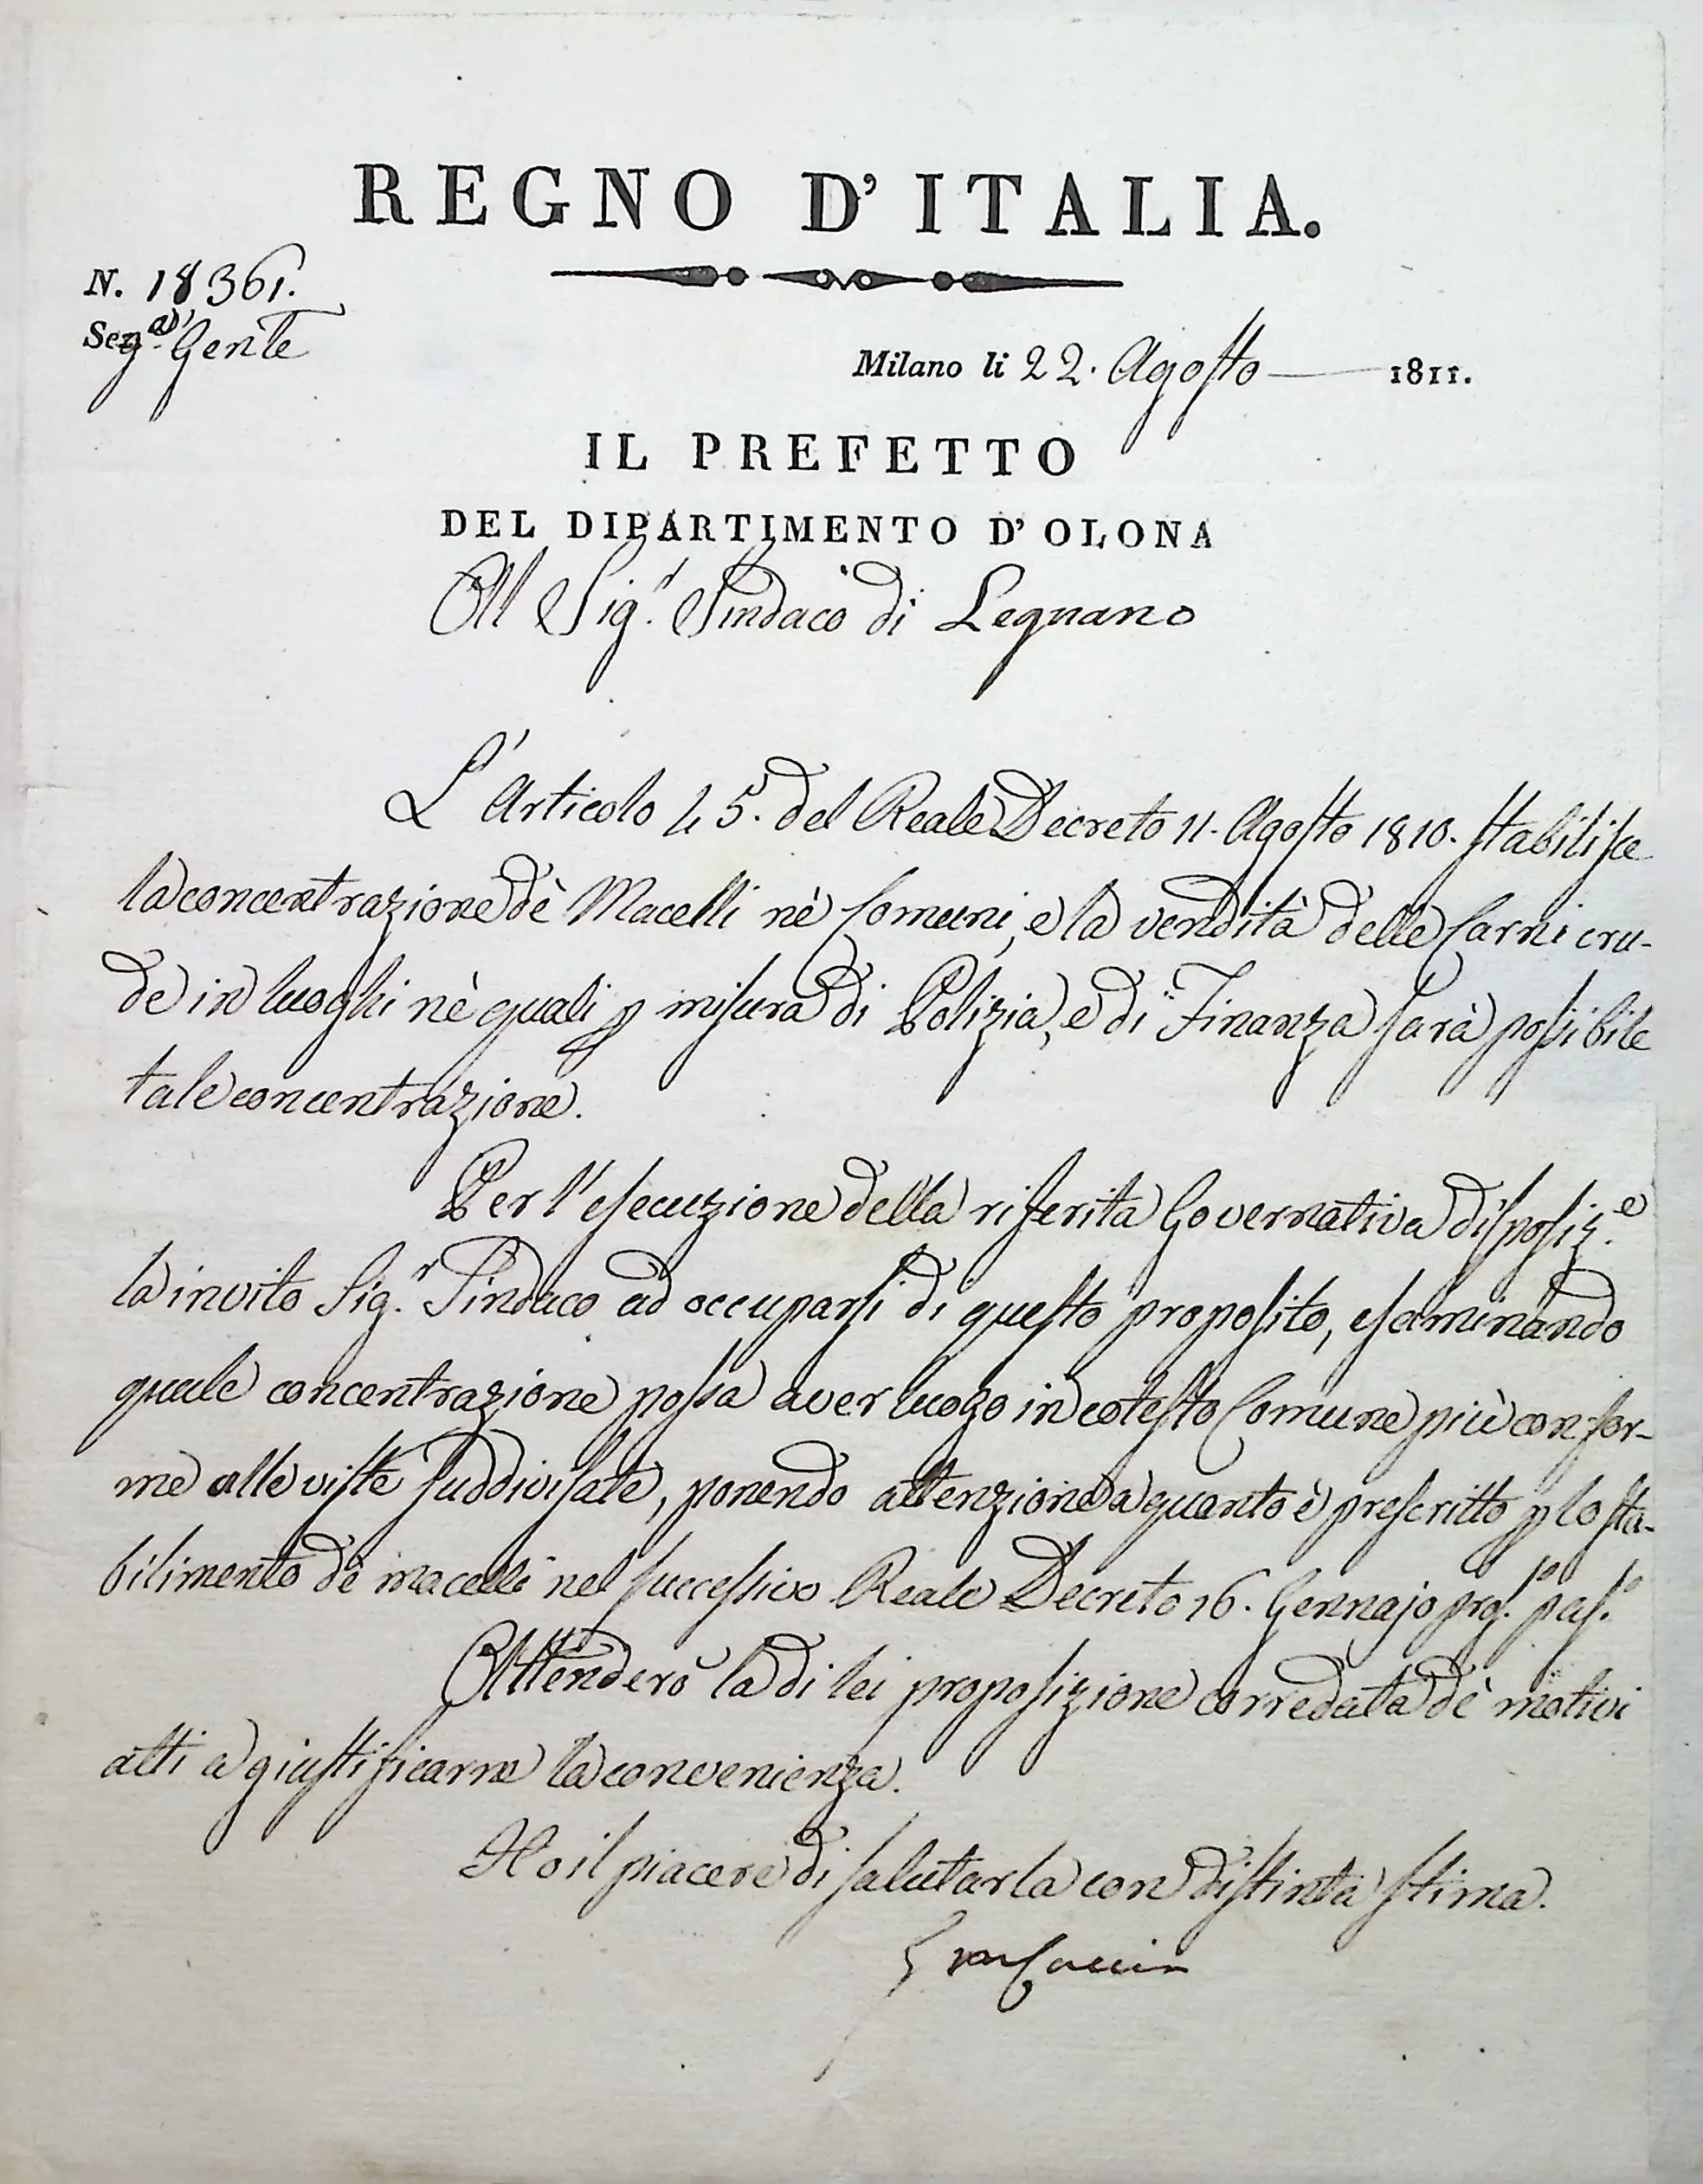 REGNO D'ITALIA.
N. 18361.
Seg.a Gen.le
Milano li 22. Agosto 1811.
IL PREFETTO
DEL DIPARTIMENTO D'OLONA
Al Sig.r Sindaco di Legnano
L'Articolo 45. del Reale Decreto 11. Agosto 1810. stabilisce
la concentrazione dè Macelli nè Comuni, e la vendita delle Carni cru-
de in luoghi nè quali p misura di Polizia, e di Finanza sarà possibile
tale concentrazione.
Per l'esecuzione della riferita Governativa disposiz.e
la invito Sig.r Sindaco ad occuparsi di questo proposito, esaminando
quale concentrazione possa aver luogo in cotesto Comune più confor-
me alle viste suddivisate, ponendo attenzione a quanto è prescritto p lo sta-
bilimento dè macelli nel successivo Reale Decreto 16. Gennajo pros.o pas.o
Attenderò la di lei proposizione corredata dè motivi
atti a giustificarne la convenienza.
Ho il piacere di salutarla con distinta stima.